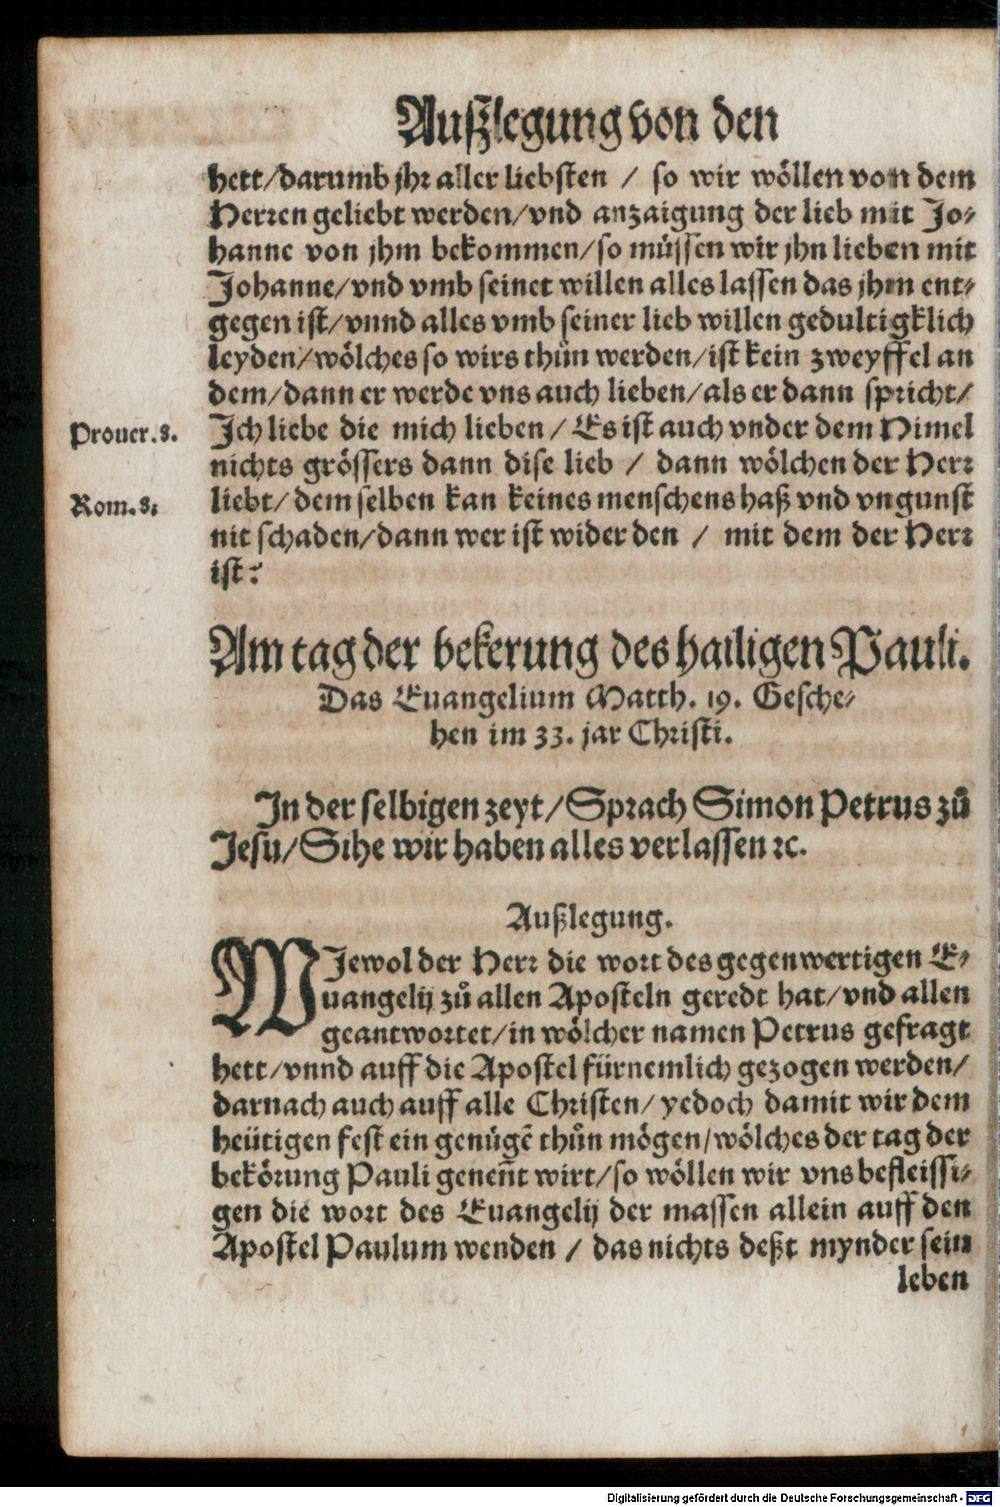 Außlegung von den
hett/darumb jhr aller liebsten / so wir wöllen von dem
Herren geliebt werden/vnd anzaigung der lieb mit Jo-
hanne von jhm bekommen/so müssen wir jhn lieben mit
Johanne/vnd vmb seinet willen alles lassen das jhm ent-
gegen ist/vnnd alles vmb seiner lieb willen gedultigklich
leyden/wölches so wirs thůn werden/ist kein zweyffel an
dem/dann er werde vns auch lieben/als er dann spricht/
Prouer.8. Ich liebe die mich lieben / Es ist auch vnder dem Himel
nichts grössers dann dise lieb / dann wölchen der Herr
Rom.8. liebt/dem selben kan keines menschens haß vnd vngunst
nit schaden/dann wer ist wider den / mit dem der Herr
ist?
Am tag der bekerung des hailigen Pauli.
Das Euangelium Matth. 19. Gesche-
hen im 33. jar Christi.
In der selbigen zeyt/Sprach Simon Petrus zů
Jesu/Sihe wir haben alles verlassen ꝛc.
Außlegung.
WJewol der Herr die wort des gegenwertigen E-
uangelij zů allen Aposteln geredt hat/vnd allen
geantwortet/in wölcher namen Petrus gefragt
hett/vnnd auff die Apostel fürnemlich gezogen werden/
darnach auch auff alle Christen/yedoch damit wir dem
heütigen fest ein genügẽ thůn mögen/wölches der tag der
bekörung Pauli geneñt wirt/so wöllen wir vns befleissi-
gen die wort des Euangelij der massen allein auff den
Apostel Paulum wenden / das nichts deßt mynder sein
leben
Digitalisierung gefördert durch die Deutsche Forschungsgemeinschaft - DFG